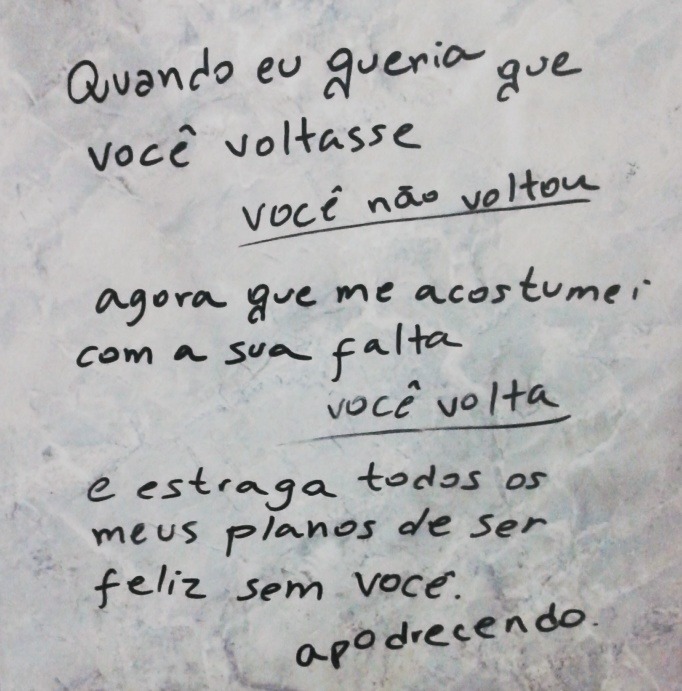 Quando eu queria que
você voltasse
você não voltou
agora que me acostumei
com a sua falta
você volta
e estraga todos os
meus planos de ser
feliz sem você.
apodrecendo.